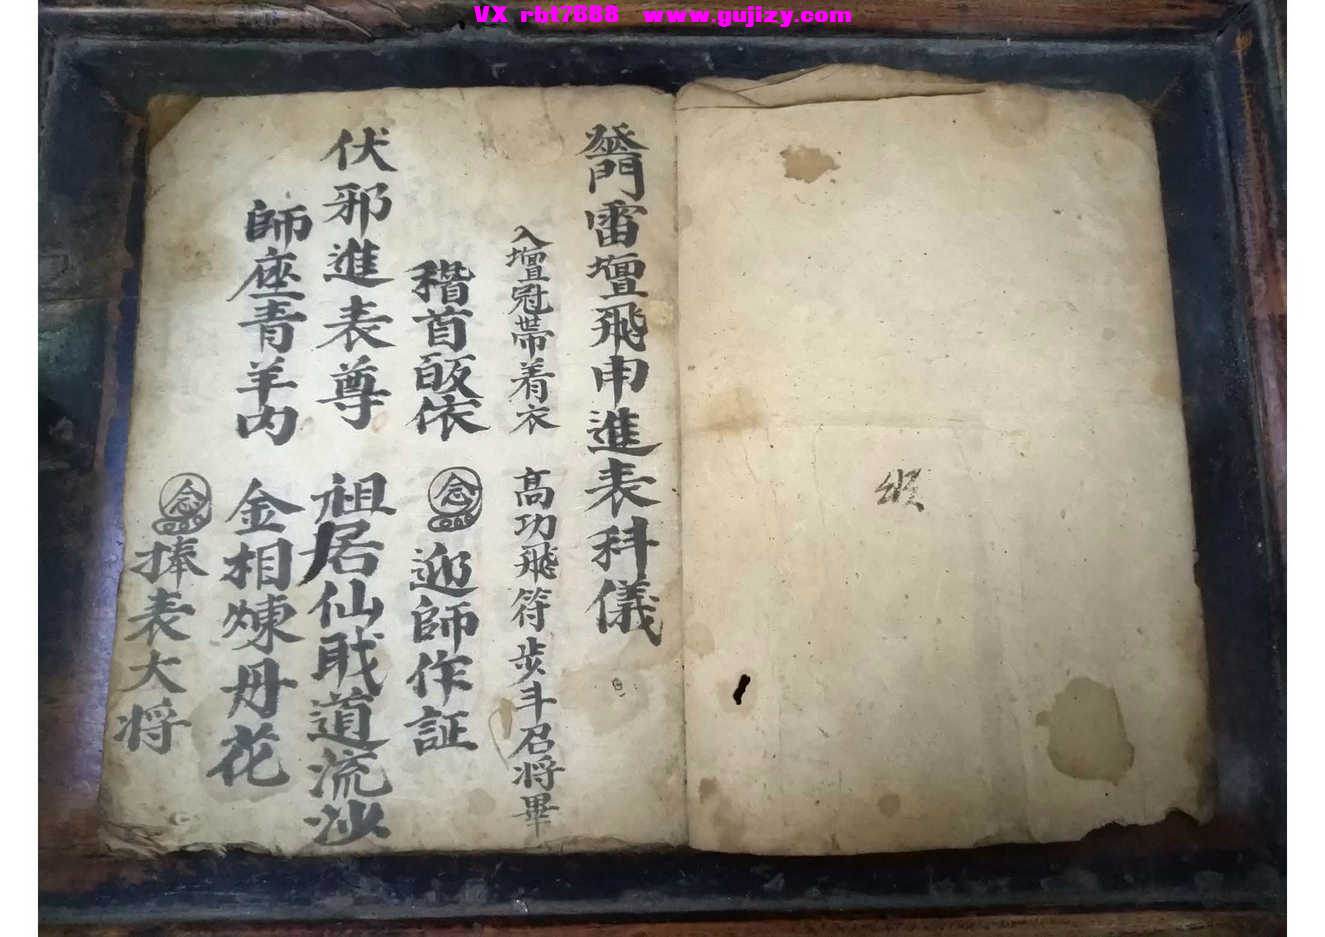 VX rbt7888 www.gujizy.com
門雷壇飛申進表科儀
入壇冠帶着衣 高功飛符步斗召将畢
稽首皈依 念 迎師作証
伏邪進表尊 祖居仙戝道流沙
師座青羊内 金相煉丹花
念 捧表大将